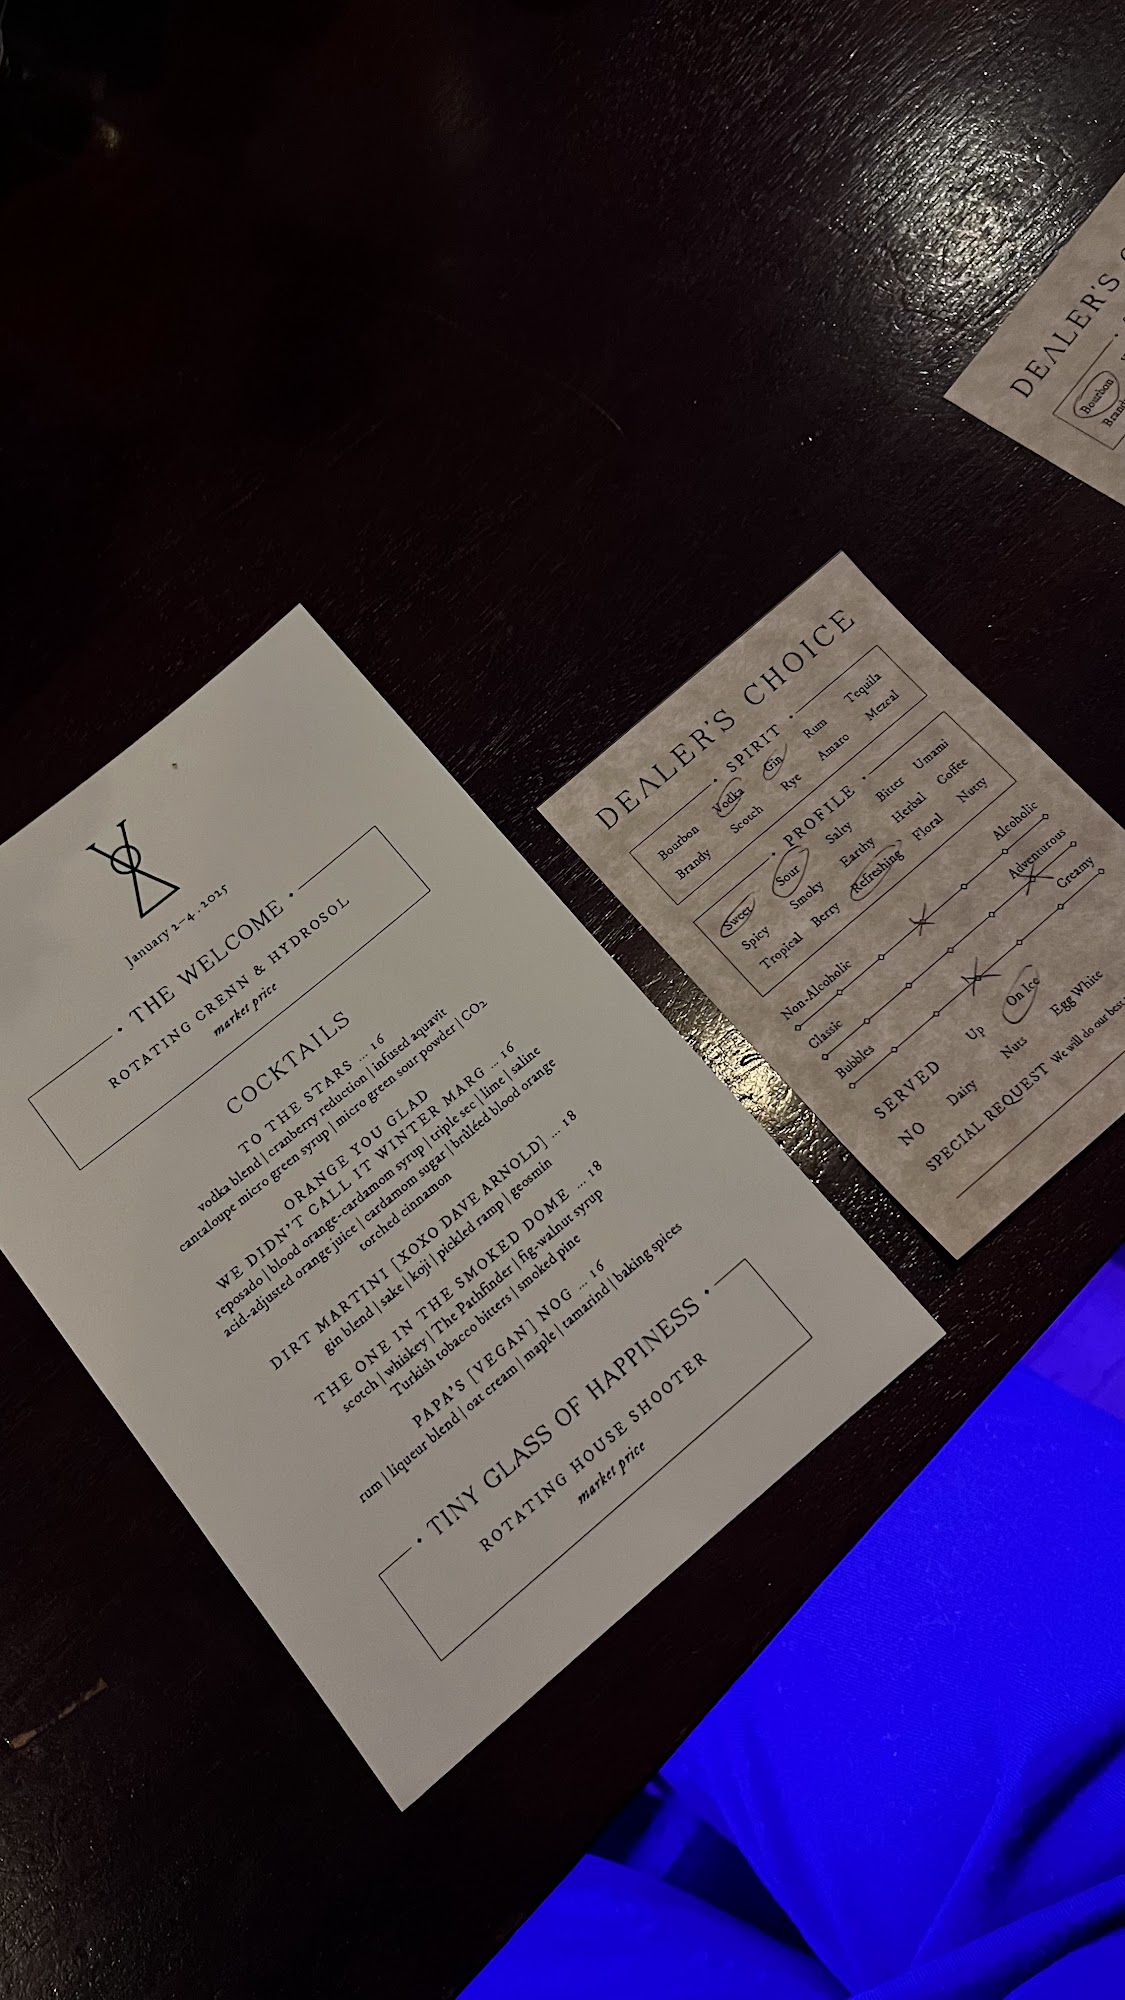 January 2–4 . 2025
· THE WELCOME ·
ROTATING CRENN & HYDROSOL
market price
COCKTAILS
TO THE STARS ... 16
vodka blend | cranberry reduction | infused aquavit
cantaloupe micro green syrup | micro green sour powder | CO2
ORANGE YOU GLAD
WE DIDN'T CALL IT WINTER MARG ... 16
reposado | blood orange-cardamom syrup | triple sec | lime | saline
acid-adjusted orange juice | cardamom sugar | brûléed blood orange
torched cinnamon
DIRT MARTINI [XOXO DAVE ARNOLD] ... 18
gin blend | sake | koji | pickled ramp | geosmin
THE ONE IN THE SMOKED DOME ... 18
scotch | whiskey | The Pathfinder | fig-walnut syrup
Turkish tobacco bitters | smoked pine
PAPA'S [VEGAN] NOG ... 16
rum | liqueur blend | oat cream | maple | tamarind | baking spices
· TINY GLASS OF HAPPINESS ·
ROTATING HOUSE SHOOTER
market price
DEALER'S CHOICE
· SPIRIT ·
Bourbon Vodka Gin Rum Tequila
Brandy Scotch Rye Amaro Mezcal
· PROFILE ·
Sweet Sour Salty Bitter Umami
Spicy Smoky Earthy Herbal Coffee
Tropical Berry Refreshing Floral Nutty
Non-Alcoholic Alcoholic
Classic Adventurous
Bubbles Creamy
SERVED Up On Ice
NO Dairy Nuts Egg White
SPECIAL REQUEST We will do our best
DEALER'S
Bourbon